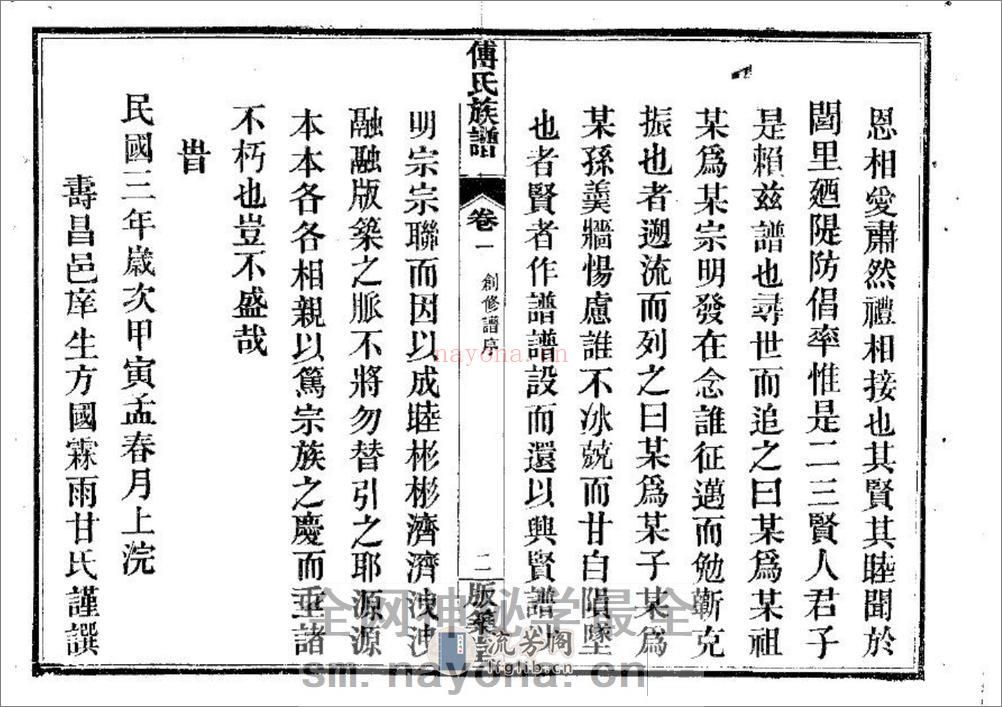 恩相愛肅然禮相接也其賢其睦聞於
閭里廼隄防倡率惟是二三賢人君子
是賴兹譜也尋世而追之曰某爲某祖
某爲某宗明發在念誰征邁而勉蘄克
振也者遡流而列之曰某爲某子某爲
某孫羹牆惕慮誰不冰兢而甘自隕墜
也者賢者作譜譜設而還以興賢譜
傅氏族譜
卷一
創修譜序
二
版築
明宗宗聯而因以成睦彬彬濟濟洩洩
融融版築之脈不將勿替引之耶源源
本本各各相親以篤宗族之慶而垂諸
不朽也豈不盛哉
旹
民國三年歲次甲寅孟春月上浣
壽昌邑庠生方國霖雨甘氏謹譔
nayona.cn
全网神秘学最全
流芳阁
lfglib.cn
sm.nayona.cn